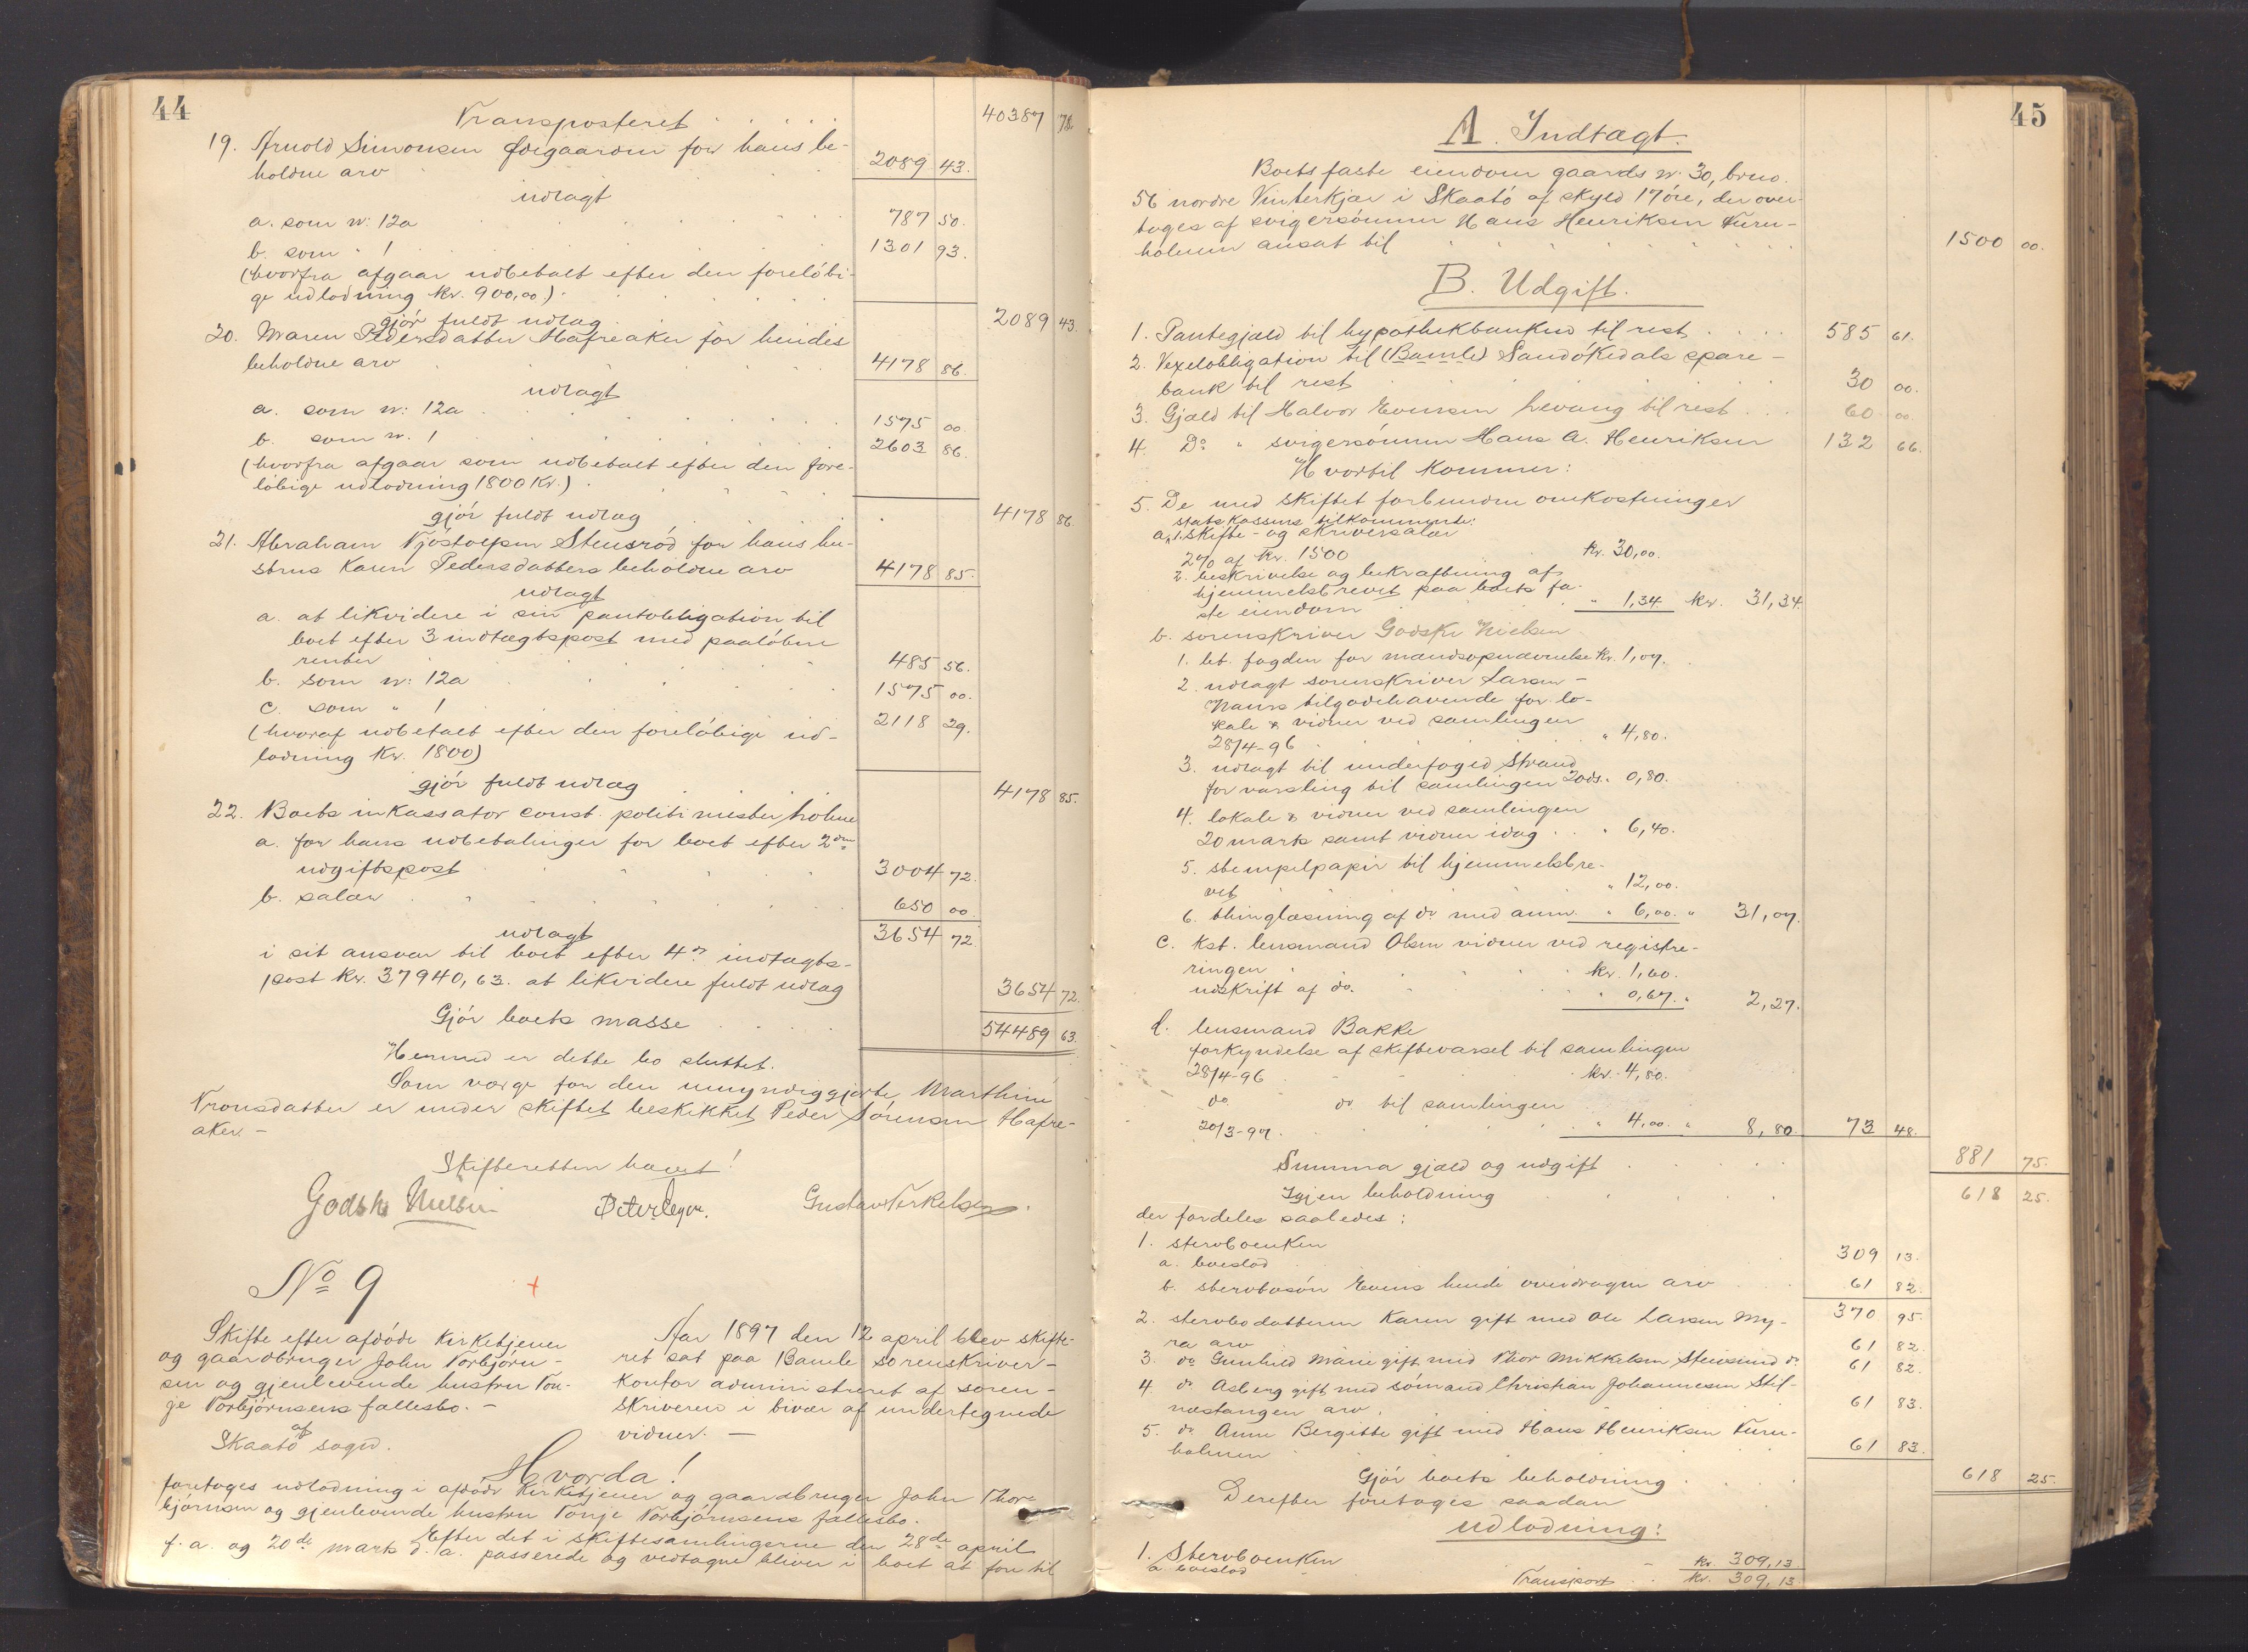 44
Transporteret . . . . 40387 78.
19. Arnold Simonsen Ødegaarden for hans be-
holdne arv . . . 2089 43.
udlagt
a. som nr: 12a . . . 787 50.
b. som " 1 . . . 1301 93.
(hvorfra afgaar udbetalt efter den foreløbi-
ge udlodning kr. 900,00). . . .
gjør fuldt udlæg . . . 2089 43.
20. Maren Pedersdatter Hafreaker for hendes
beholdne arv . . . 4178 86.
udlagt
a. som nr: 12a . . . 1575 00.
b. som nr. 1 . . . 2603 86.
(hvorfra afgaar som udbetalt efter den fore-
løbige udlodning 1800 kr.) . . .
gjør fuldt udlæg . . . 4178 86.
21. Abraham Tjøstolvsen Stensrød for hans hu-
strus Karen Pedersdatters beholdne arv 4178 85.
udlagt
a. at likvidere i sin pantobligation til
boet efter 3 indtægtspost med paaløbne
renter . . . 485 56.
b. som nr: 12a . . . 1575 00.
c. som " 1 . . . 2118 29.
(hvoraf udbetalt efter den foreløbige ud-
lodning kr. 1800)
gjør fuldt udlæg . . . 4178 85.
22. Boets inkassator const. politimester Holme
a. for hans udbetalinger for boet efter 2den
udgiftspost . . . 3004 72.
b. salær . . . 650 00.
udlagt 3654 72.
i sit ansvar til boet efter 4de indtægts-
post kr. 37940,63. at likvidere fuldt udlæg 3654 72.
Gjør boets masse . . . 54489 63.
Hermed er dette bo sluttet.
Som værge for den umyndiggjorte Marthine
Tronsdatter er under skiftet beskikket Peder Sørensen Hafre-
aker. -
Skifteretten hævet!
Godske Nielsen Gustav Terkelsen.
No 9 +
Skifte efter afdøde kirketjener
og gaardbruger John Torbjørn-
sen og gjenlevende hustru Ton-
ge Torbjørnsens fællesbo. -
af
Skaatø sogn.
Aar 1897 den 12 april blev skifte-
ret sat paa Bamle sorenskriver-
kontor administreret af soren-
skriveren i bivær af undertegnede
vidner. -
Hvorda!
foretoges udlodning i afdøde kirketjener og gaardbruger John Thor-
bjørnsen og gjenlevende hustru Tonje Torbjørnsens fællesbo.
Efter det i skiftesamlingerne den 28de april
f. a. og 20de marts d. a. passerede og vedtagne bliver i boet at føre til
45
A. Indtægt.
Boets faste eiendom gaards nr. 30, brno.
56 nordre Vinterkjær i Skaatø af skyld 17 øre, der over-
tages af svigersønnen Hans Henriksen Furu-
holmen ansat til . . . 1500 00.
B. Udgift.
1. Pantegjæld til hypothekbanken til rest . . . 585 61.
2. Vexelobligation til (Bamle) Sandøkedals spare-
bank til rest . . . 30 00.
3. Gjæld til Halvor Evensen Levang til rest . . . 60 00.
4. Do " svigersønnen Hans A. Henriksen 132 66.
Hvortil kommer:
5. De med skiftet forbundne omkostninger
statskassens tilkommende:
a, 1. skifte- og skriversalær
2% af kr. 1500 kr. 30,00.
2. beskrivelse og bekræftning af
hjemmelsbrevet paa boets fa-
ste eiendom . . . " 1,34 kr. 31,34.
b. sorenskriver Godske Nielsen
1. bet. fogden for mandsopnævnelse kr. 1,07.
2. udlagt sorenskriver Larsen-
Naurs tilgodehavende for lo-
kale & vidner ved samlingen
28/4-96 . . . " 4,80.
3. udlagt til underfoged Strand
for varsling til samlingen 20ds. " 0,80.
4. lokale & vidner ved samlingen
20 marts samt vidner idag . . " 6,40.
5. stempelpapir til hjemmelsbre-
vet . . . " 12,00.
6. thinglæsning af do med anm. " 6,00. " 31,07.
c. kst. lensmand Olsen vidner ved registre-
ringen . . . kr. 1,60.
udskrift af do. . . . " 0,67. " 2,27.
d. lensmand Bakke
forkyndelse af skiftevarsel til samlingen
28/4-96 . . . kr. 4,80.
do do til samlingen
20/3-97. . . . " 4,00. " 8,80. 73 48.
Summa gjæld og udgift . . . 881 75.
Igjen beholdning . . . 618 25.
der fordeles saaledes:
1. stervboenken
a. boeslod . . . 309 13.
b. stervbosøn Evens hende overdragne arv . . 61 82.
370 95.
2. stervbodatteren Karen gift med Ole Larsen My-
ra arv 61 82.
3. do Gunhild Marie gift med Thor Mikkelsen Stensund do 61 82.
4. do Asberg gift med sømand Christian Johannesen Stil-
næstangen arv . . . 61 83.
5. do Anne Bergitte gift med Hans Henriksen Furu-
holmen . . . 61 83.
Gjør boets beholdning . . . 618 25.
Derefter foretoges saadan
udlodning:
1. Stervboenken
a. boeslod - kr. 309,13.
Transport . . kr. 309,13.